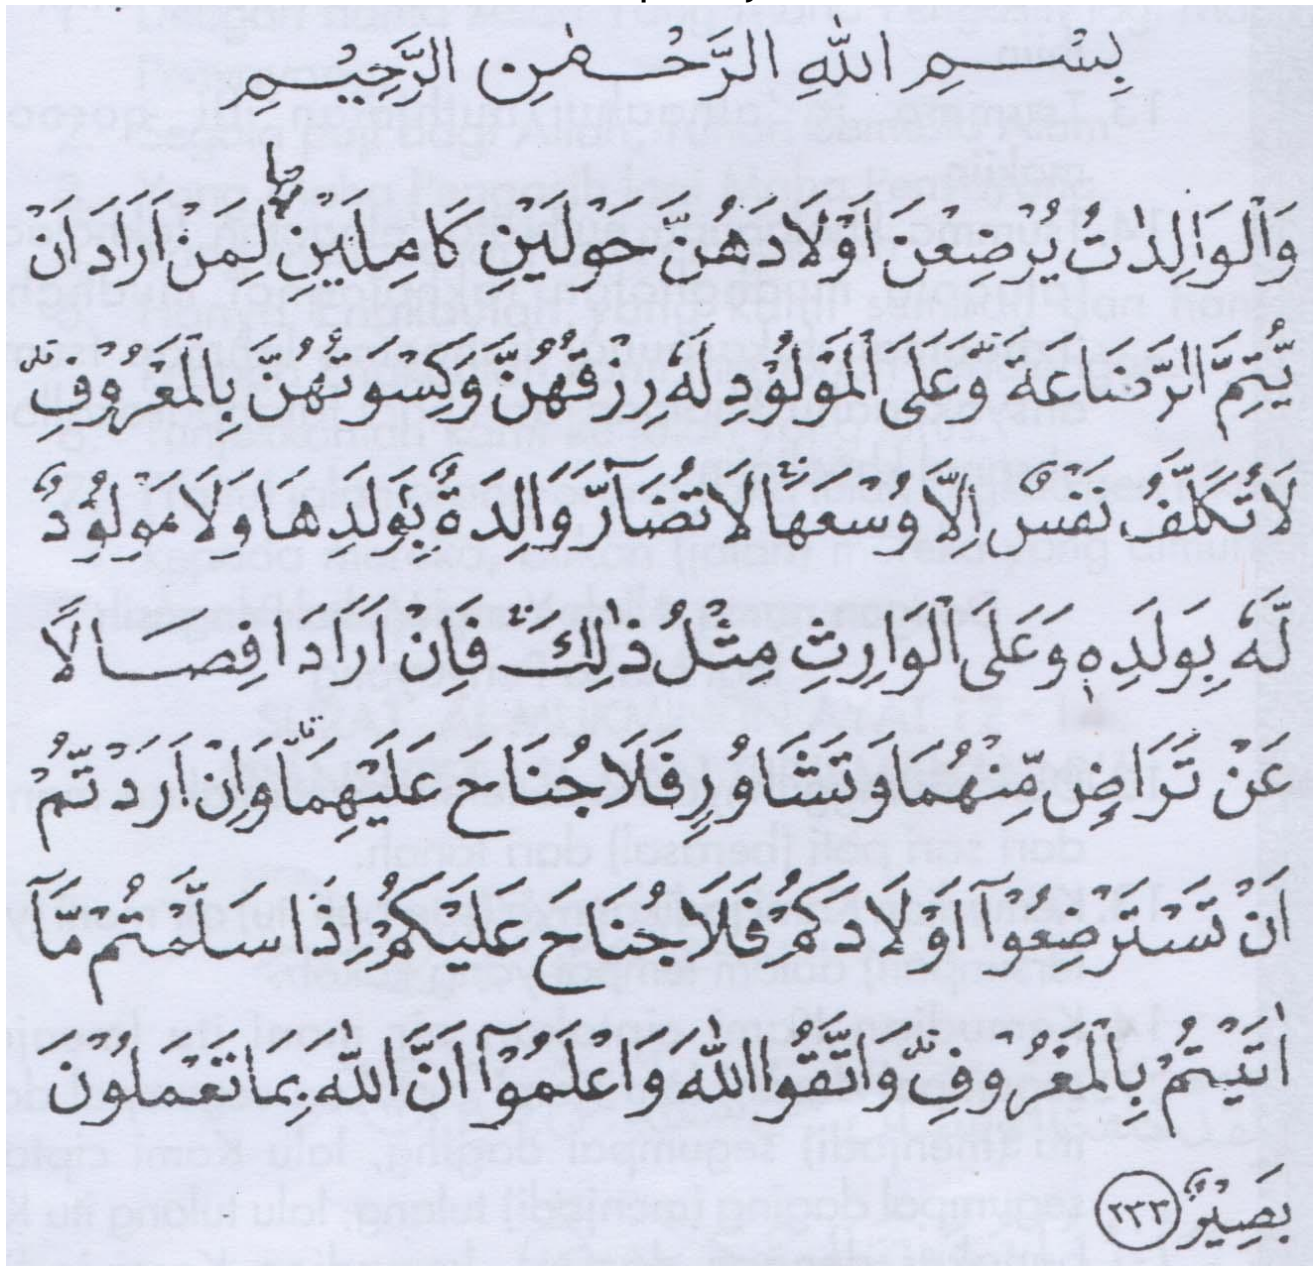 بِسْمِ اللهِ الرَّحْمٰنِ الرَّحِيْمِ
وَالْوَالِدٰتُ يُرْضِعْنَ اَوْلَادَهُنَّ حَوْلَيْنِ كَامِلَيْنِ لِمَنْ اَرَادَ اَنْ
يُّتِمَّ الرَّضَاعَةَ ۗ وَعَلَى الْمَوْلُوْدِ لَهٗ رِزْقُهُنَّ وَكِسْوَتُهُنَّ بِالْمَعْرُوْفِ ۗ
لَا تُكَلَّفُ نَفْسٌ اِلَّا وُسْعَهَا ۚ لَا تُضَآرَّ وَالِدَةٌ ۢ بِوَلَدِهَا وَلَا مَوْلُوْدٌ
لَّهٗ بِوَلَدِهٖ وَعَلَى الْوَارِثِ مِثْلُ ذٰلِكَ ۚ فَاِنْ اَرَادَا فِصَالًا
عَنْ تَرَاضٍ مِّنْهُمَا وَتَشَاوُرٍ فَلَا جُنَاحَ عَلَيْهِمَا ۗ وَاِنْ اَرَدْتُّمْ
اَنْ تَسْتَرْضِعُوْٓا اَوْلَادَكُمْ فَلَا جُنَاحَ عَلَيْكُمْ اِذَا سَلَّمْتُمْ مَّآ
اٰتَيْتُمْ بِالْمَعْرُوْفِ ۗ وَاتَّقُوا اللّٰهَ وَاعْلَمُوْٓا اَنَّ اللّٰهَ بِمَا تَعْمَلُوْنَ
بَصِيْرٌ ٢٣٣